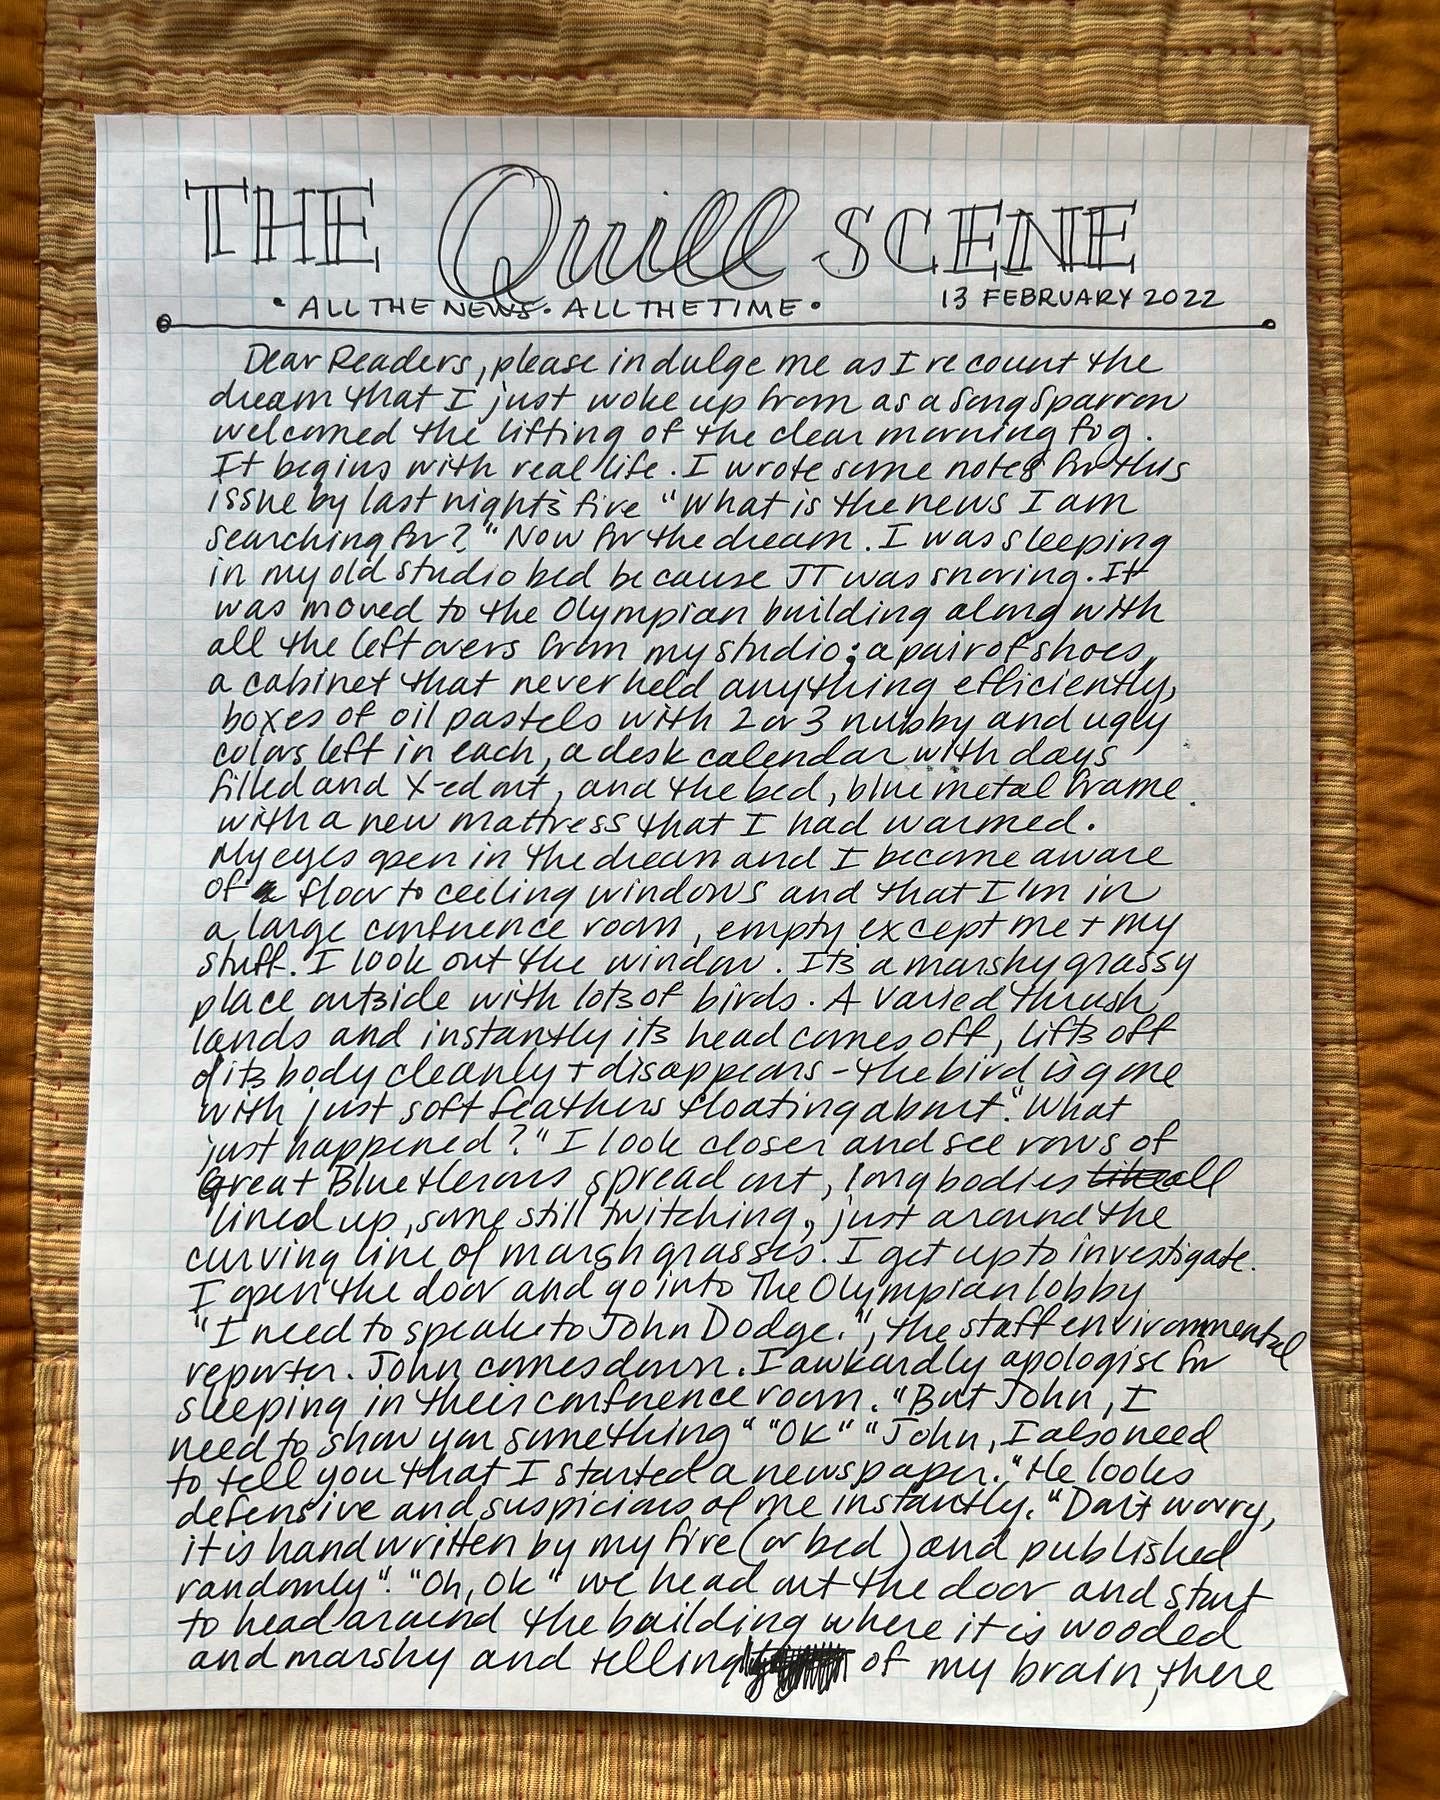 THE Quill SCENE
• ALL THE NEWS • ALL THE TIME •
13 FEBRUARY 2022
Dear Readers, please indulge me as I recount the
dream that I just woke up from as a Song Sparrow
welcomed the lifting of the clear morning fog.
It begins with real life. I wrote some notes for this
issue by last night's fire "What is the news I am
searching for?" Now for the dream. I was sleeping
in my old studio bed because JT was snoring. It
was moved to the Olympian building along with
all the leftovers from my studio; a pair of shoes,
a cabinet that never held anything efficiently,
boxes of oil pastels with 2 or 3 nubby and ugly
colors left in each, a desk calendar with days
filled and X-ed out, and the bed, blue metal frame
with a new mattress that I had warmed.
My eyes open in the dream and I become aware
of floor to ceiling windows and that I'm in
a large conference room, empty except me + my
stuff. I look out the window. It's a marshy grassy
place outside with lots of birds. A Varied Thrush
lands and instantly its head comes off, lifts off
of its body cleanly + disappears - the bird is gone
with just soft feathers floating about. "What
just happened?" I look closer and see rows of
Great Blue Herons spread out, long bodies all
lined up, some still twitching, just around the
curving line of marsh grasses. I get up to investigate.
I open the door and go into The Olympian lobby
"I need to speak to John Dodge.", the staff environmental
reporter. John comes down. I awkardly apologise for
sleeping in their conference room. "But John, I
need to show you something" "OK" "John, I also need
to tell you that I started a newspaper." He looks
defensive and suspicious of me instantly. "Don't worry,
it is handwritten by my fire (or bed) and published
randomly". "Oh, Ok" we head out the door and start
to head around the building where it is wooded
and marshy and telling of my brain, there